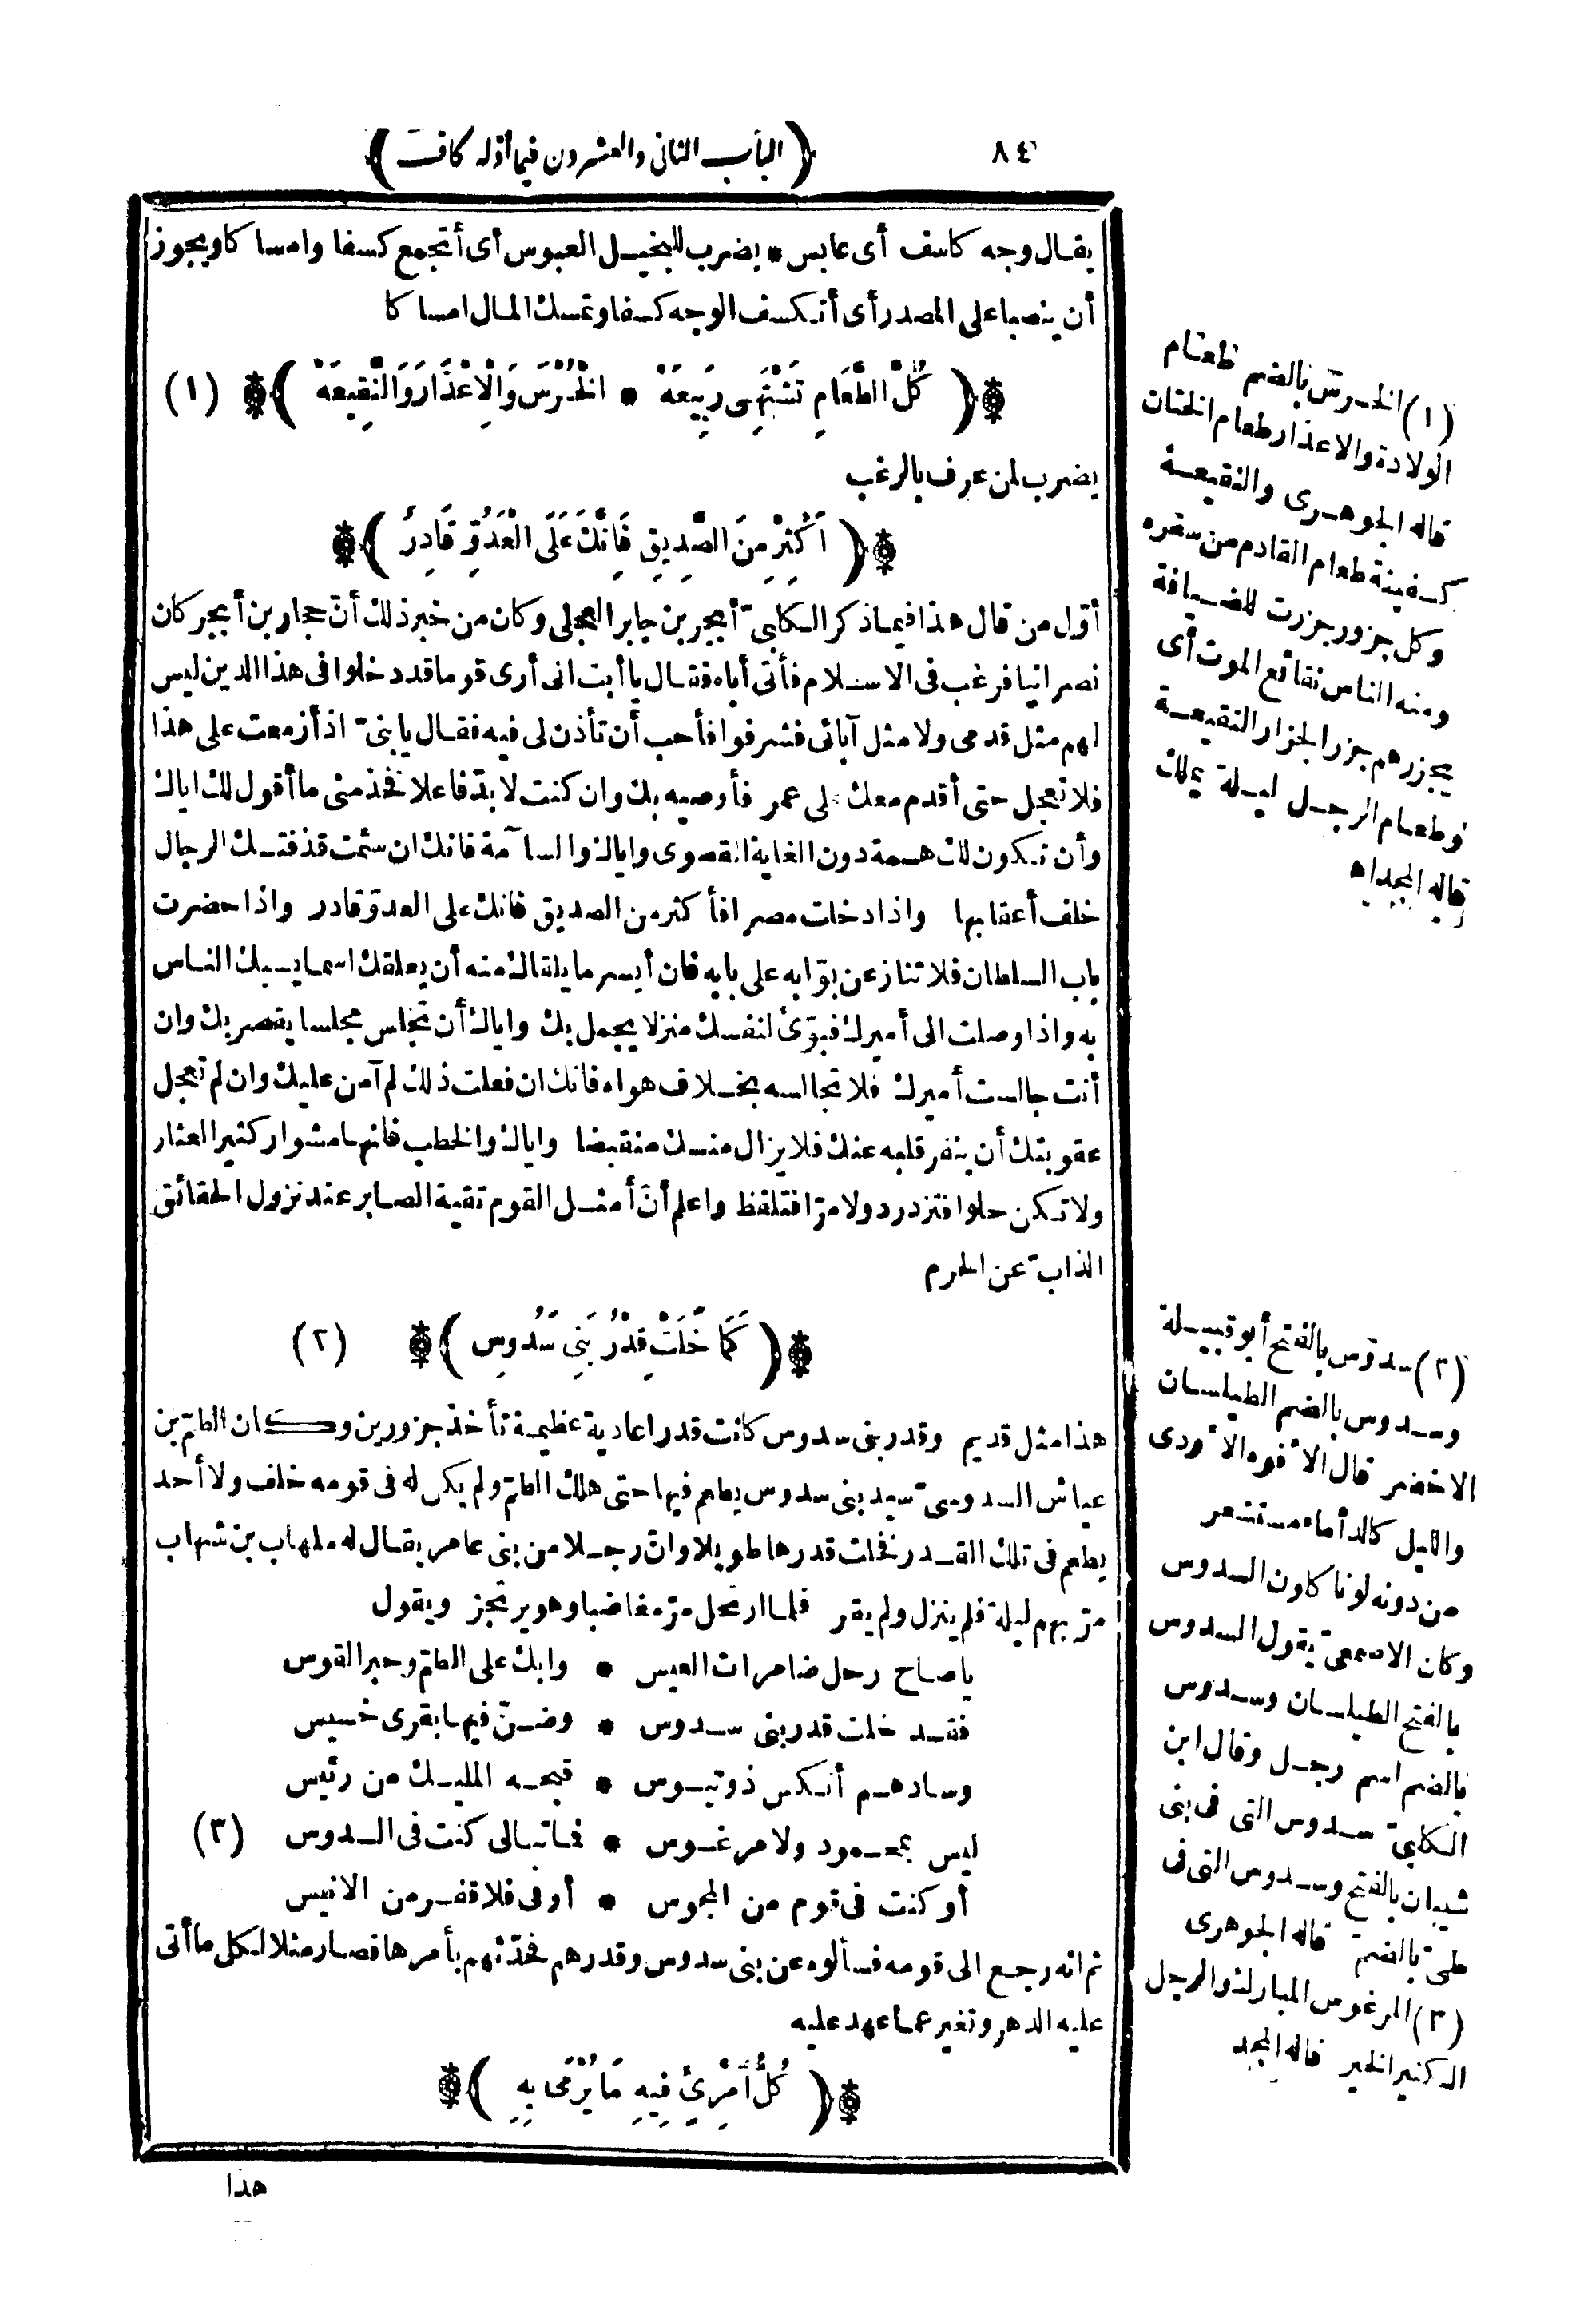 ٨٤
(الباب الثاني والعشرون فيما أوّله كاف)
يقال وجه كاسف أى عابس * يضرب للبخيل العبوس أى أتجمع كسفا وامسا كاويجوز
أن ينصبا على المصدر أى أتكسف الوجه كسفا وتمسك المال امسا كا
(كُلَّ الطَّعَامِ تَشْتَهِى رَبِيعَهْ * الْخُرْسَ وَالْاِعْذَارَ وَالنَّقِيعَهْ) (١)
يضرب لمن عرف بالرغب
(اَكْثِرْ مِنَ الصَّدِيقِ فَاِنَّكَ عَلَى الْعَدُوِّ قَادِرٌ)
أوّل من قال هذا فيما ذكر الكلبىّ أبجر بن جابر العجلى وكان من خبر ذلك أنّ حجار بن أبجر كان
نصرانيا فرغب فى الاسلام فأتى أباه فقال يا أبت انى أرى قوما قد دخلوا فى هذا الدين ليس
لهم مثل قدمى ولا مثل آبائى فشرفوا فأحب أن تأذن لى فيه فقال يا بنىّ اذ أزمعت على هذا
فلا تعجل حتى أقدم معك الى عمر فأوصيه بك وان كنت لا بدّ فاعلا نخذ منى ما أقول لك اياك
وأن تكون لك همة دون الغاية القصوى واياك والسآمة فانك ان سئمت قذفتك الرجال
خلف أعقابها واذا دخلت مصرا فأكثر من الصديق فانك على العدوّ قادر واذا حضرت
باب السلطان فلا تنازعن بوّابه على بابه فان أيسر ما يلقاك منه أن يعلقك اسما يسبك الناس
به واذا وصلت الى أميرك فبوّئ لنفسك منزلا يجمل بك واياك أن تجلس مجلسا يقصر بك وان
أنت جالست أميرك فلا تجالسه بخلاف هواه فانك ان فعلت ذلك لم آمن عليك وان لم تعجل
عقوبتك أن ينفر قلبه عنك فلا يزال منك منقبضا واياك والخطب فانها مشوار كثير العثار
ولا تكن حلوا فتزدرد ولا مرّا فتلفظ واعلم أنّ أمثل القوم تقية الصابر عند نزول الحقائق
الذابّ عن الحرم
(كَمَا خَلَتْ قِدْرُ بَنِى سَدُوسِ) (٢)
هذا مثل قديم وقدر بنى سدوس كانت قدرا عادية عظيمة تأخذ جزورين وكان الطمّ بن
عياش السدوسىّ سيد بنى سدوس يطعم فيها حتى هلك الطمّ ولم يكن له فى قومه خلف ولا أحد
يطعم فى تلك القدر نخلت قدرها طويلا وانّ رجلا من بنى عامر يقال له ملهاب بن شهاب
مرّ بهم ليلة فلم ينزل ولم يقر فلما ارتحل مرّ مغاضبا وهو يرتجز ويقول
يا صاح رحل ضامرات العيس * وابك على الطمّ وحبر القوس
فقد خلت قدر بنى سدوس * وضنّ فيها بقرى خسيس
وسادهم أنكس ذو تيوس * قبحه المليك من رئيس
ليس بمحمود ولا مرغوس * فما تبالى كنت فى السدوس (٣)
أو كنت فى قوم من المجوس * أو فى فلا قفر من الانيس
ثم انه رجع الى قومه فسألوه عن بنى سدوس وقدرهم فحدّثهم بأمرها فصار مثلا لكل ما أتى
عليه الدهر وتغير عما عهد عليه
(كُلُّ امْرِئٍ فِيهِ مَا يُرْمَى بِهِ)
هذا
(١) الخرس بالضم طعام
الولادة والاعذار طعام الختان
قاله الجوهرى والنقيعة
كسفينة طعام القادم من سفره
وكل جزور جزرت للضيافة
ومنه الناس نقائع الموت أى
يجزرهم جزر الجزار النقيعة
وطعام الرجل ليلة يملك
قاله المجد اه
(٢) سدوس بالفتح أبو قبيلة
وسدوس بالضم الطيلسان
الاخضر قال الأفوه الأودى
والليل كالدأماء مستشعر
من دونه لونا كلون السدوس
وكان الاصمعىّ يقول السدوس
بالفتح الطيلسان وسدوس
بالضم اسم رجل وقال ابن
الكلبىّ سدوس التى فى بنى
شيبان بالفتح وسدوس التى فى
طىّ بالضمّ قاله الجوهرى
(٣) المرغوس المبارك والرجل
الكثير الخير قاله المجد